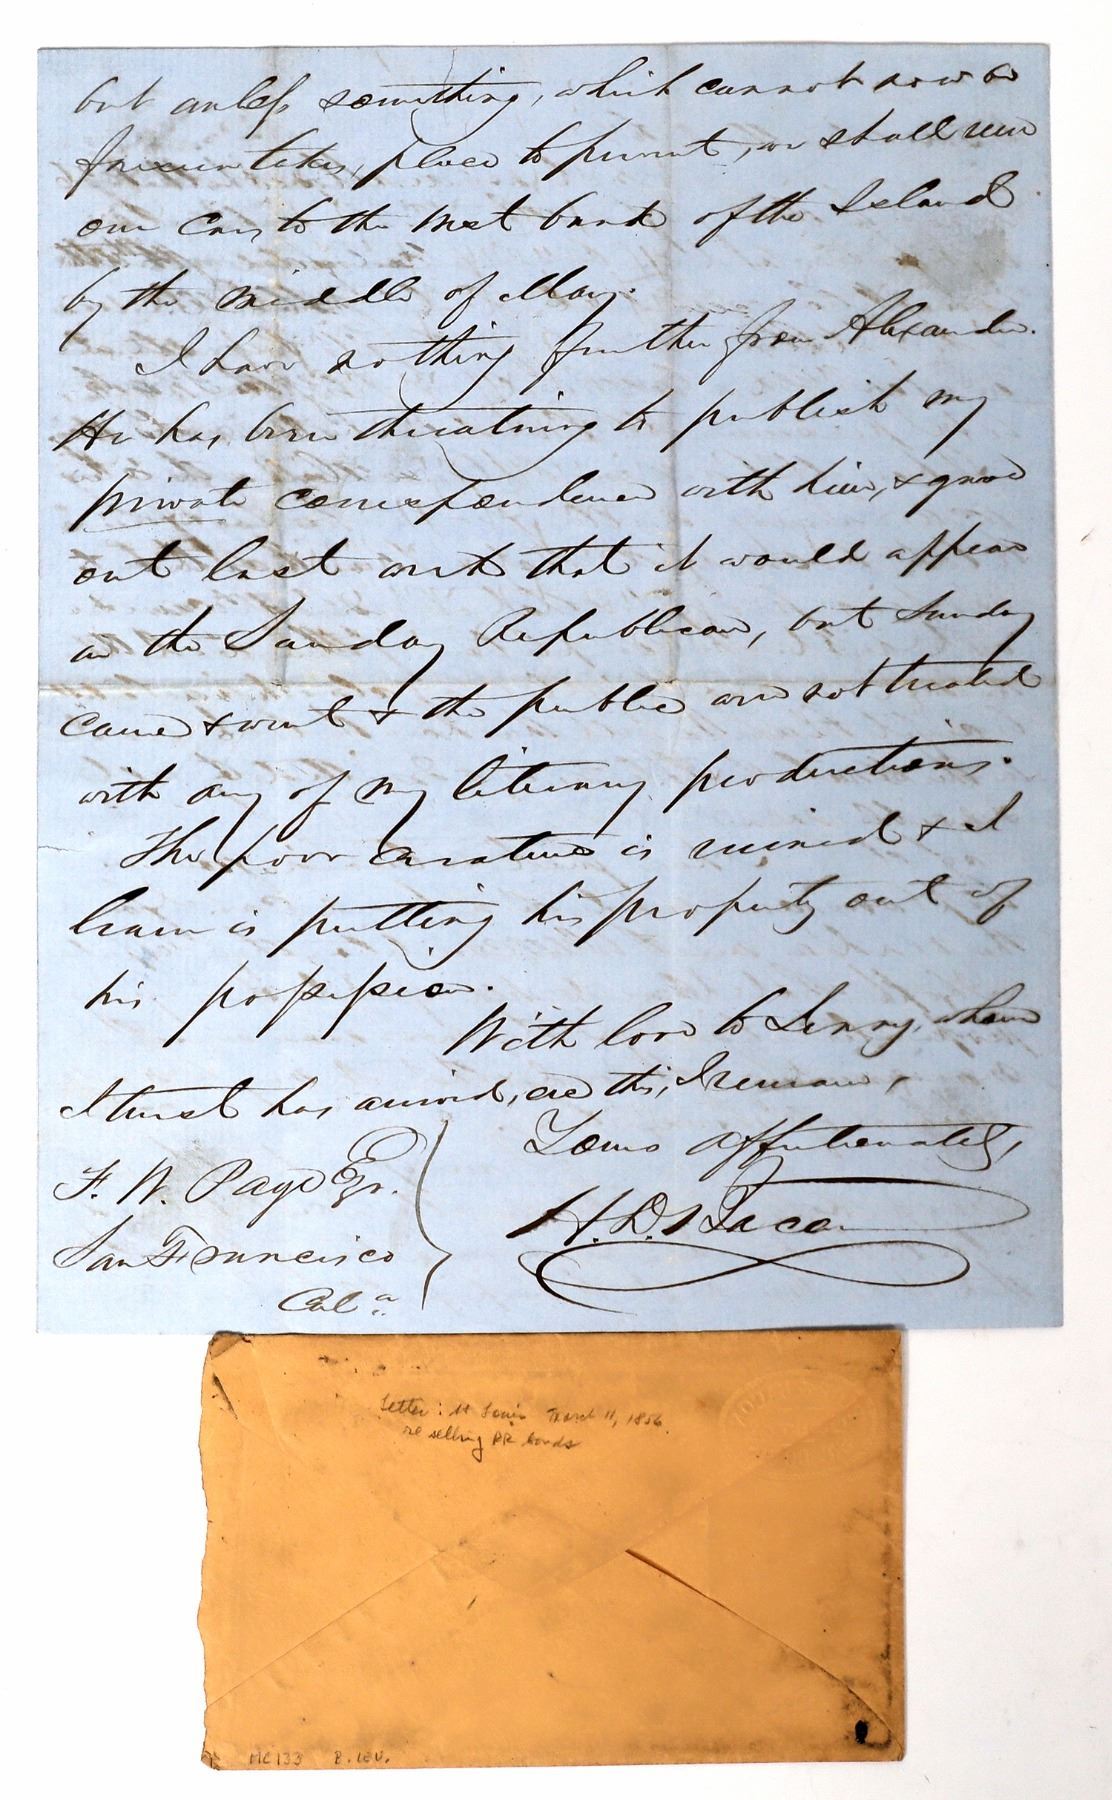 but unless something, which cannot now be
foreseen takes, place to prevent, we shall run
our cars to the West bank of the Island
by the middle of May.
I have nothing further from Alexander.
He has been threatning to publish my
private correspondence with him, & gave
out last week that it would appear
in the Sunday Republican, but Sunday
came & went & the public are not treated
with any of my literary productions.
The poor creature is ruined & I
learn is putting his property out of
his possession.
With love to Lenny, whom
I trust has arrived, ere this, I remain,
Yours affectionately,
H. D. Bacon
F. W. Page Esqr.
San Francisco
Cala
Letter: St Louis March 11, 1856
re selling RR bonds
MC133 B. LEU.